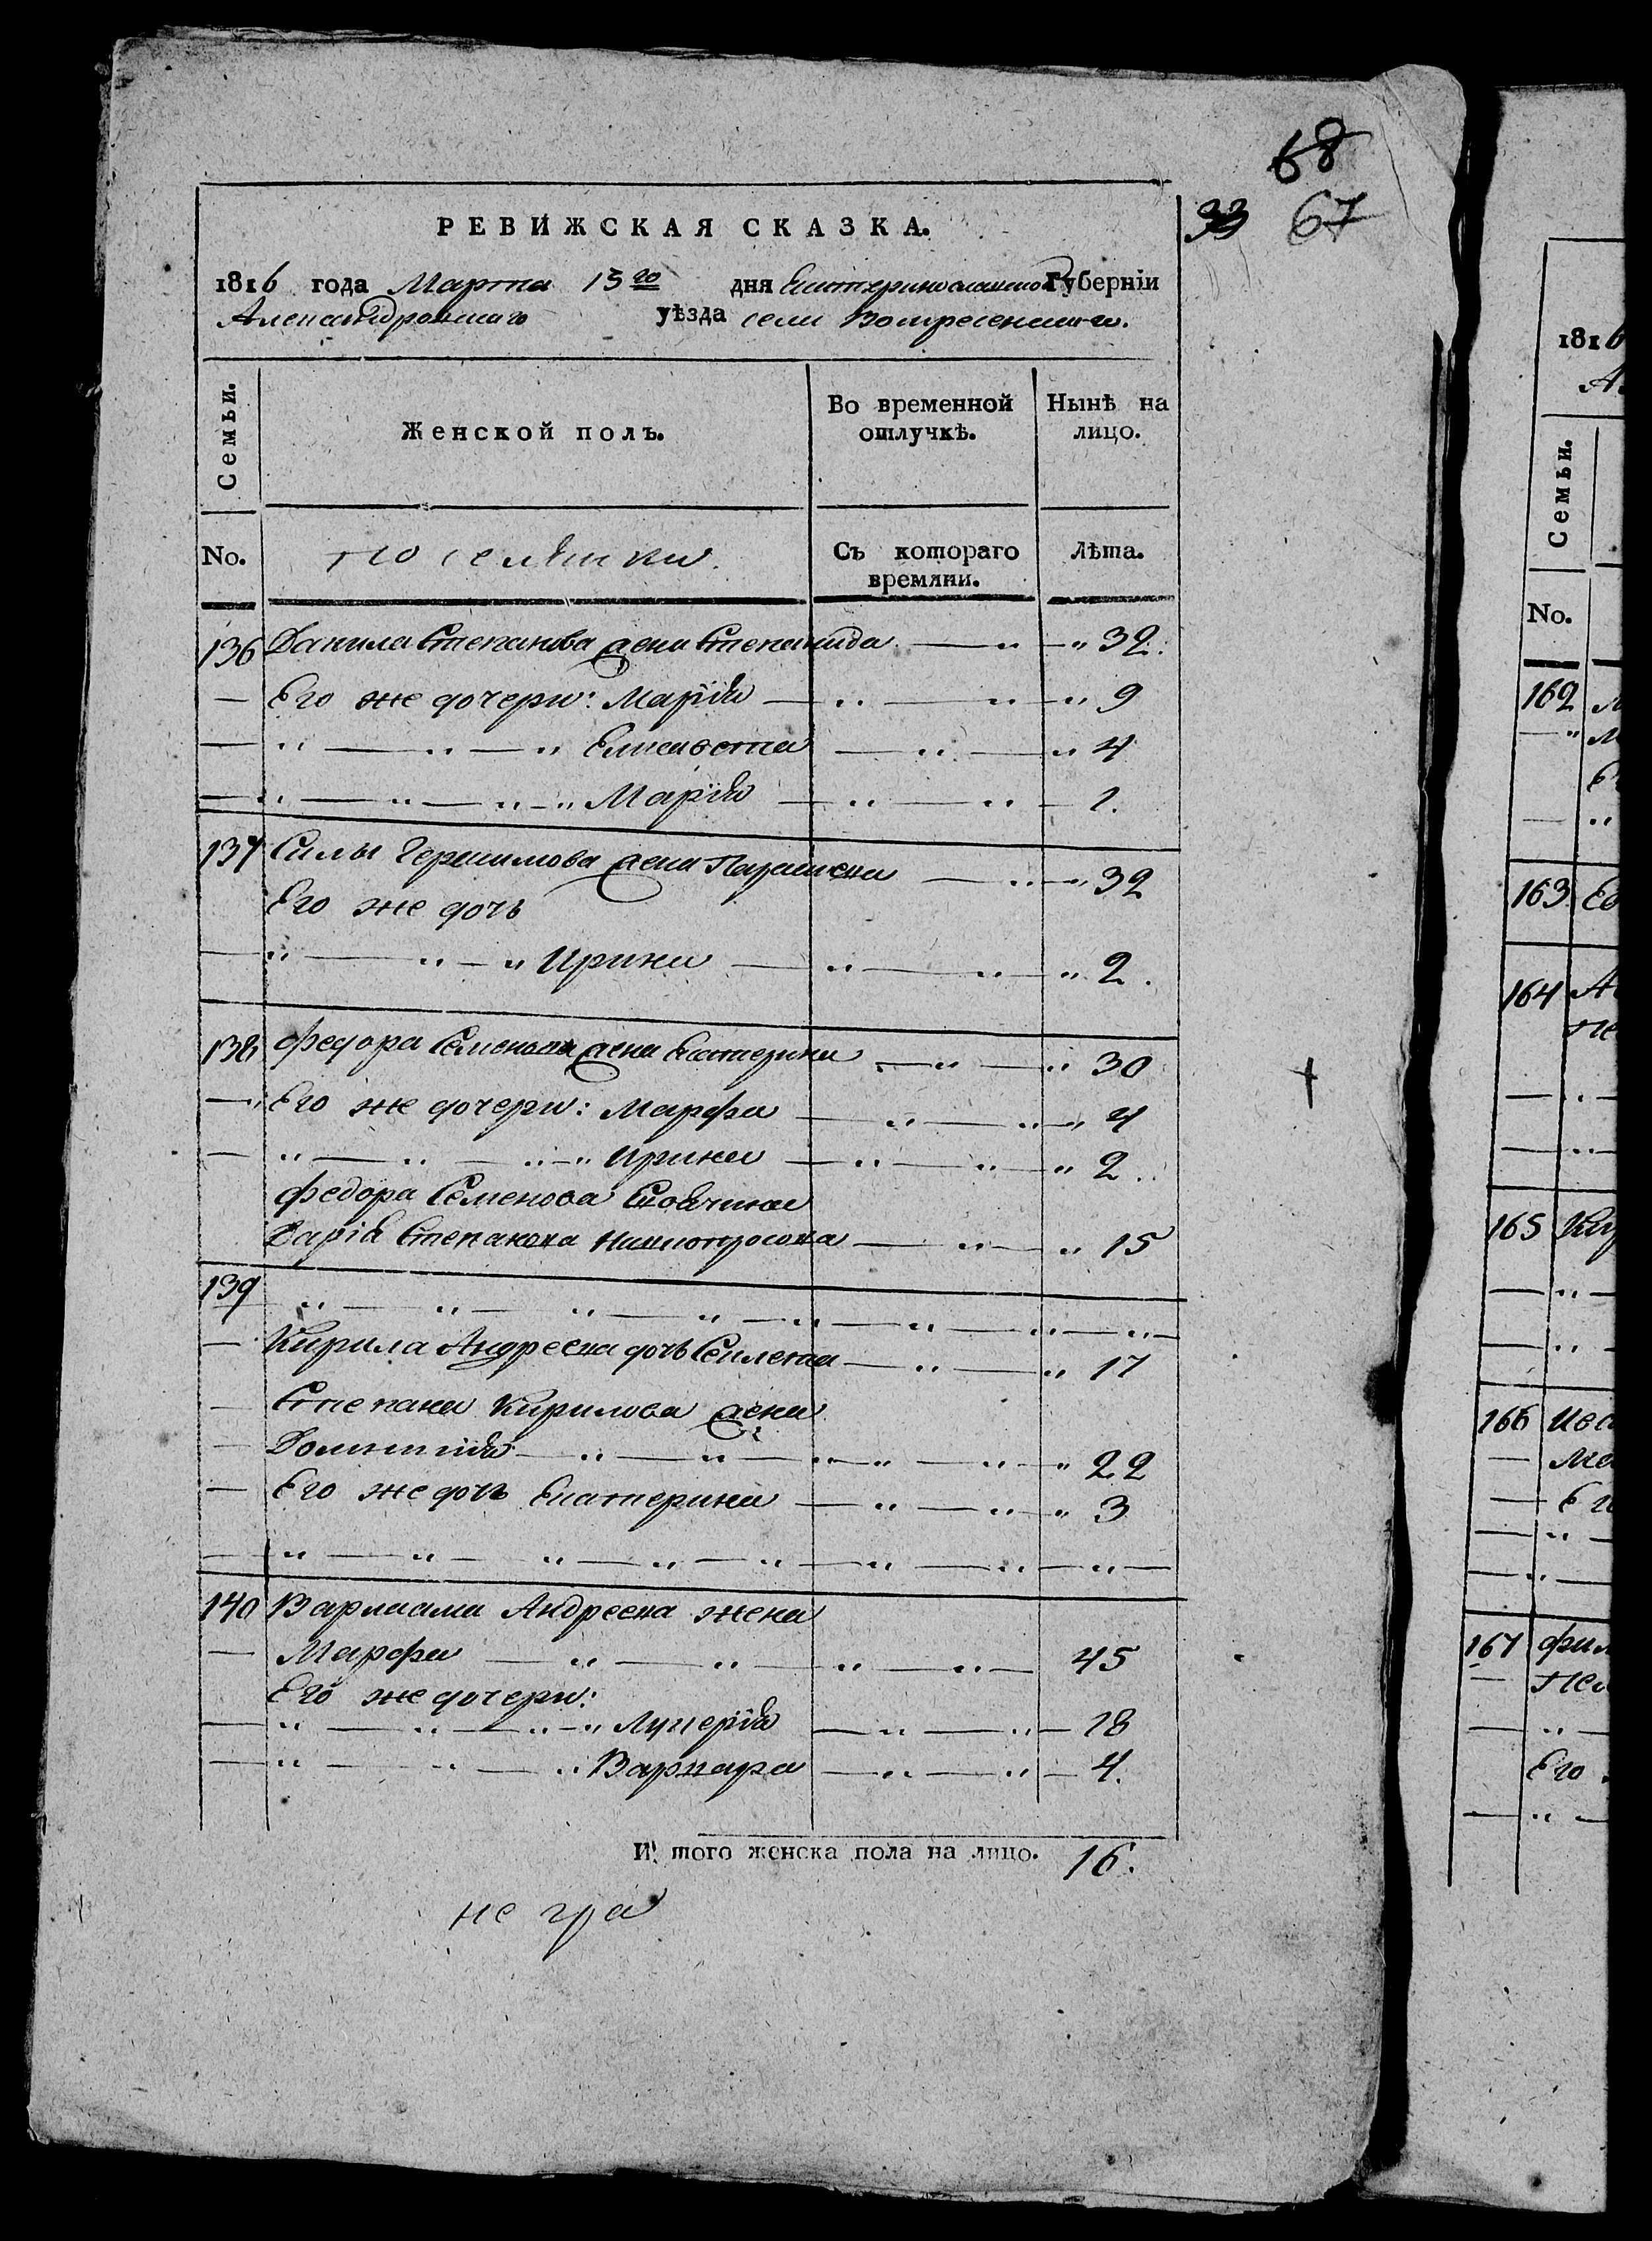 68
33 67
РЕВИЖСКАЯ СКАЗКА.
1816 года Марта 15го дня Екатеринославской Губерніи
Александровскаго уѣзда села Воскресенскаго.
Семьи.
Женской полъ.
Во временной отлучкѣ.
Нынѣ на лицо.
No.
поселянки.
Съ котораго времяни.
Лѣта.
136 Данила Степанова жена Степанида — " — " 32.
— Его же дочери: Марія — " — " — " 9
— " — " — " Елисавета — " — " 4
— " — " — " — " Марія — " — " — 1.
137 Силы Герасимова жена Параскева — " — " 32
Его же дочь
— " — " — " Ирина — " — " — " 2.
138 Федора Семенова жена Екатерина — " — " 30
— " Его же дочери: Марфа — " — " — " 4
— " — " — " — " Ирина — " — " — " 2.
Федора Семенова
Дарія Степанова — " — " 15
139 " — " — " — " — " — " — " — " —
— Кирила Андреева дочь — " — " 17
— Степана Кирилова жена
— — " — " — " — " — " — " 22
— Его же дочь Екатерина — " — " — " 3
— " — " — " — " — " — " — " — " —
140 Варлаама Андреева жена
— Марфа — " — " — " — " — 45
Его же дочери:
— " — " — " — " Лукерія — " — " — 18
— " — " — " Варвара — " — " — 4.
И того женска пола на лицо. 16.
не гра
1816
Семьи.
No.
162
163
164
165
166
167
Его